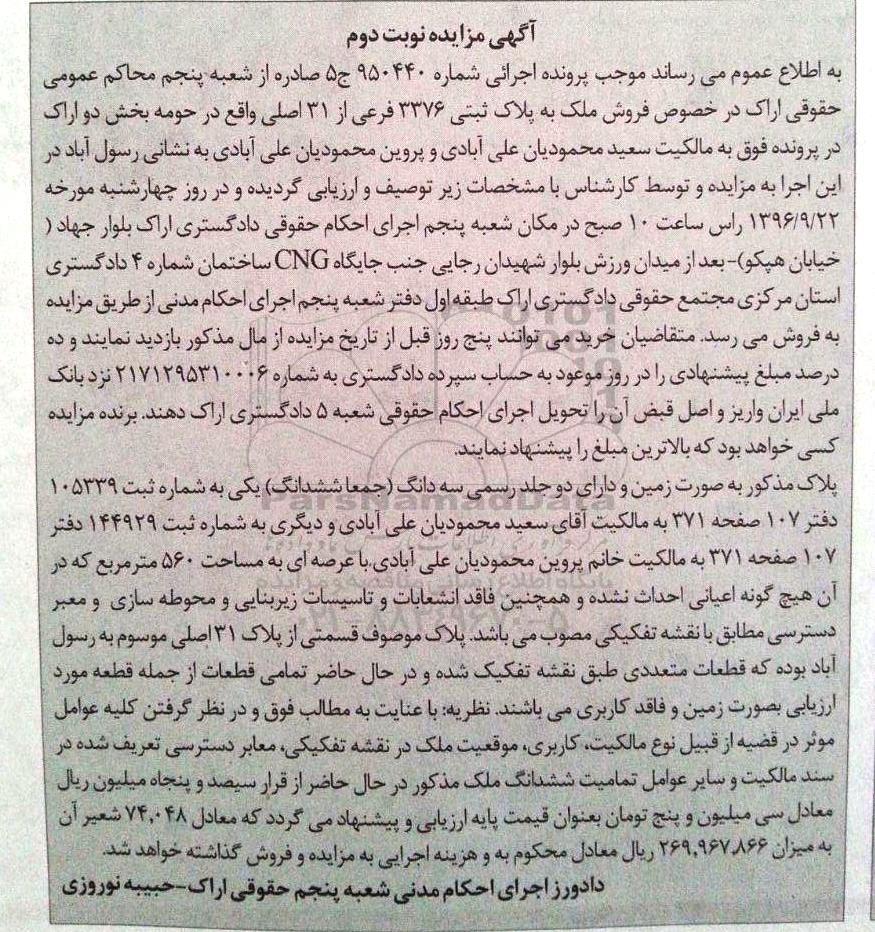 آگهی مزایده نوبت دوم
به اطلاع عموم می رساند موجب پرونده اجرائی شماره ۹۵۰۴۴۰ ج۵ صادره از شعبه پنجم محاکم عمومی
حقوقی اراک در خصوص فروش ملک به پلاک ثبتی ۳۳۷۶ فرعی از ۳۱ اصلی واقع در حومه بخش دو اراک
در پرونده فوق به مالکیت سعید محمودیان علی آبادی و پروین محمودیان علی آبادی به نشانی رسول آباد در
این اجرا به مزایده و توسط کارشناس با مشخصات زیر توصیف و ارزیابی گردیده و در روز چهارشنبه مورخه
۱۳۹۶/۹/۲۲ راس ساعت ۱۰ صبح در مکان شعبه پنجم اجرای احکام حقوقی دادگستری اراک بلوار جهاد (
خیابان هپکو)-بعد از میدان ورزش بلوار شهیدان رجایی جنب جایگاه CNG ساختمان شماره ۴ دادگستری
استان مرکزی مجتمع حقوقی دادگستری اراک طبقه اول دفتر شعبه پنجم اجرای احکام مدنی از طریق مزایده
به فروش می رسد. متقاضیان خرید می توانند پنج روز قبل از تاریخ مزایده از مال مذکور بازدید نمایند و ده
درصد مبلغ پیشنهادی را در روز موعود به حساب سپرده دادگستری به شماره ۲۱۷۱۲۹۵۳۱۰۰۰۶ نزد بانک
ملی ایران واریز و اصل قبض آن را تحویل اجرای احکام حقوقی شعبه ۵ دادگستری اراک دهند. برنده مزایده
کسی خواهد بود که بالاترین مبلغ را پیشنهاد نمایند.
پلاک مذکور به صورت زمین و دارای دو جلد رسمی سه دانگ (جمعا ششدانگ) یکی به شماره ثبت ۱۰۵۳۳۹
دفتر ۱۰۷ صفحه ۳۷۱ به مالکیت آقای سعید محمودیان علی آبادی و دیگری به شماره ثبت ۱۴۴۹۲۹ دفتر
۱۰۷ صفحه ۳۷۱ به مالکیت خانم پروین محمودیان علی آبادی با عرصه ای به مساحت ۵۶۰ مترمربع که در
آن هیچ گونه اعیانی احداث نشده و همچنین فاقد انشعابات و تاسیسات زیربنایی و محوطه سازی و معبر
دسترسی مطابق با نقشه تفکیکی مصوب می باشد. پلاک موصوف قسمتی از پلاک ۳۱ اصلی موسوم به رسول
آباد بوده که قطعات متعددی طبق نقشه تفکیک شده و در حال حاضر تمامی قطعات از جمله قطعه مورد
ارزیابی بصورت زمین و فاقد کاربری می باشند. نظریه: با عنایت به مطالب فوق و در نظر گرفتن کلیه عوامل
موثر در قضیه از قبیل نوع مالکیت، کاربری، موقعیت ملک در نقشه تفکیکی، معابر دسترسی تعریف شده در
سند مالکیت و سایر عوامل تمامیت ششدانگ ملک مذکور در حال حاضر از قرار سیصد و پنجاه میلیون ریال
معادل سی میلیون و پنج تومان بعنوان قیمت پایه ارزیابی و پیشنهاد می گردد که معادل ۷۴,۰۴۸ شعیر آن
به میزان ۲۶۹,۹۶۷,۸۶۶ ریال معادل محکوم به و هزینه اجرایی به مزایده و فروش گذاشته خواهد شد.
دادورز اجرای احکام مدنی شعبه پنجم حقوقی اراک-حبیبه نوروزی
ParsNamadData